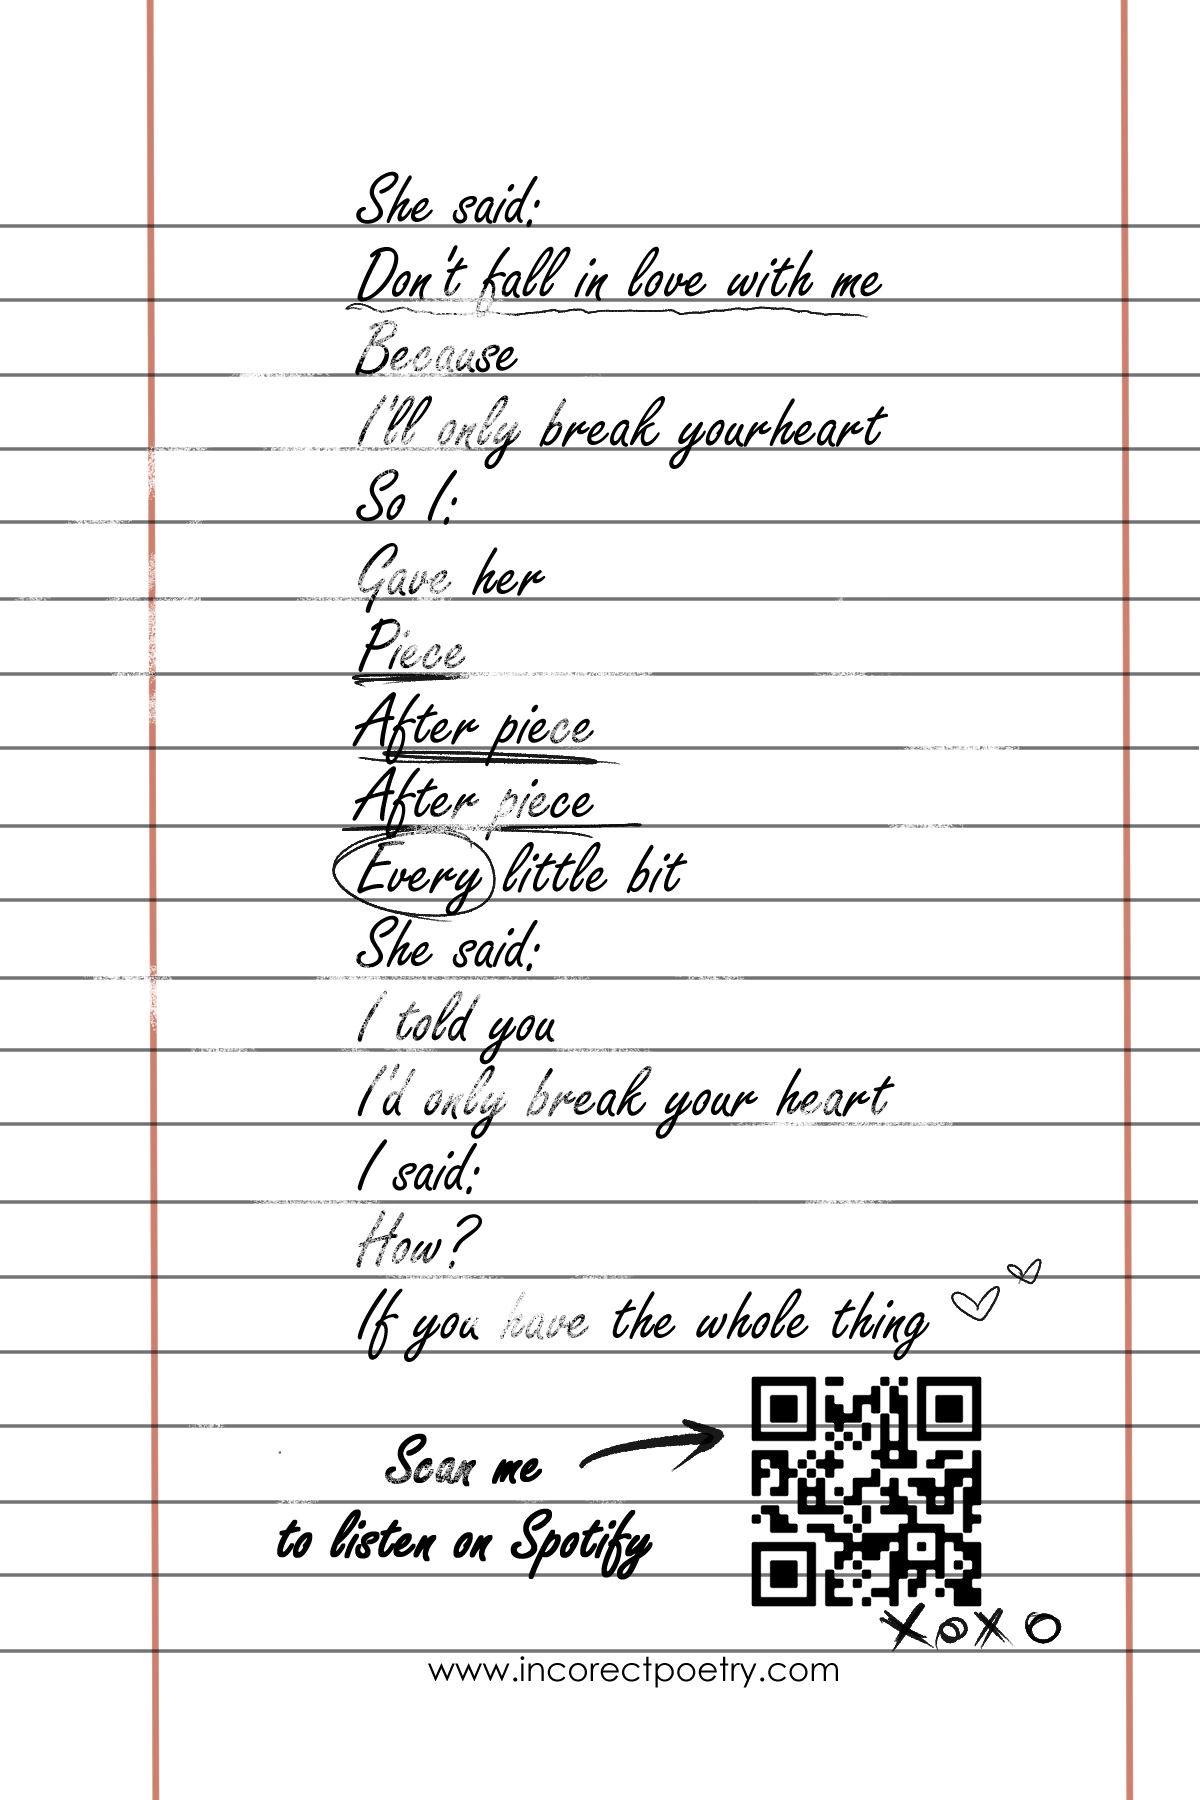 She said:
Don't fall in love with me
Because
I'll only break yourheart
So I:
Gave her
Piece
After piece
After piece
Every little bit
She said:
I told you
I'd only break your heart
I said:
How?
If you have the whole thing
Scan me
to listen on Spotify
XOXO
www.incorectpoetry.com